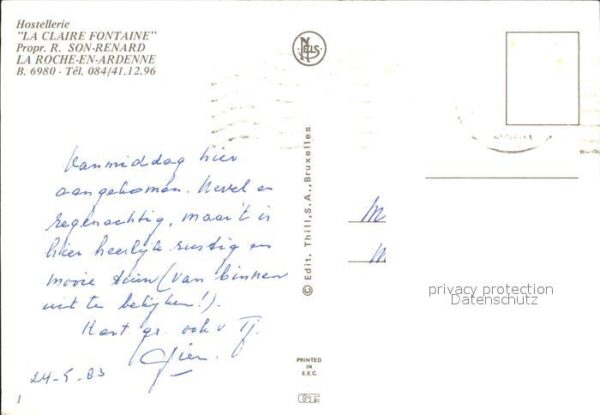 Hostellerie
"LA CLAIRE FONTAINE"
Propr. R. SON-RENARD
LA ROCHE-EN-ARDENNE
B. 6980 - Tél. 084/41.12.96
Vanmiddag hier
aangekomen. Nevel en
regenachtig, maar 't is
hier heerlijk rustig en
mooie tuin (van binnen
uit te bekijken!).
Hart. gr. ook v Tj.
24-5-83
1
NELS
© Edit. Thill, S.A., Bruxelles
PRINTED
IN
E.E.C.
M
M
privacy protection
Datenschutz